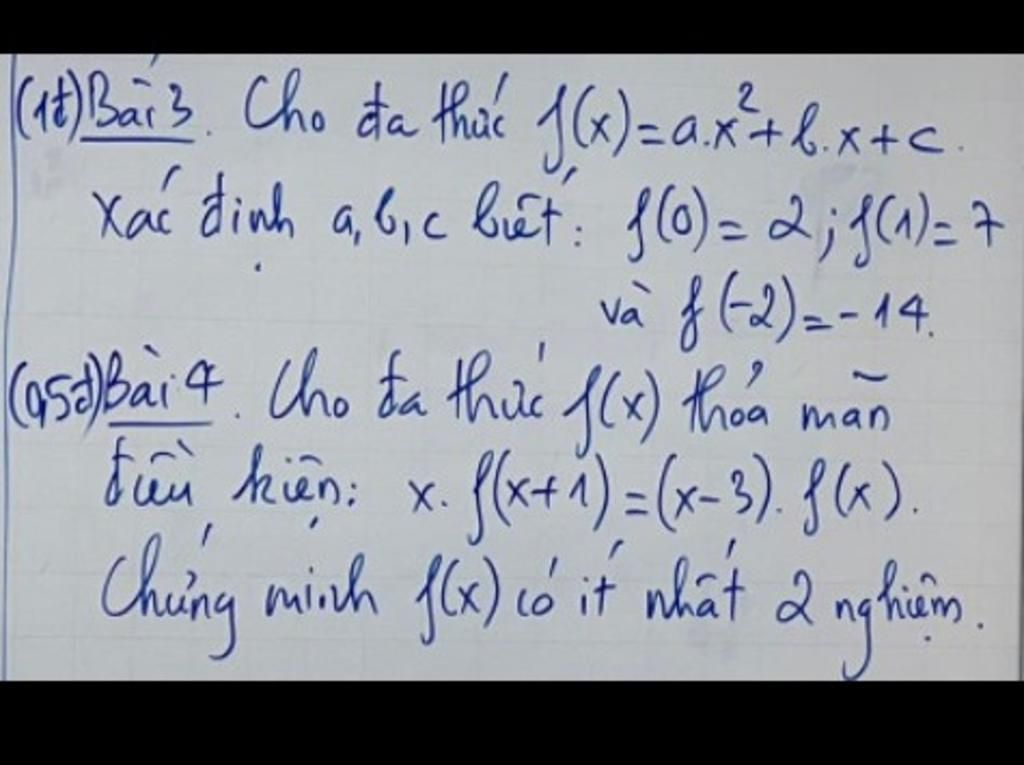 (1đ) Bài 3. Cho đa thức f(x) = a.x² + b.x + c.
Xác định a, b, c biết: f(0) = 2; f(1) = 7
và f(-2) = -14.
(0,5đ) Bài 4. Cho đa thức f(x) thỏa mãn
điều kiện: x. f(x+1) = (x-3). f(x).
Chứng minh f(x) có ít nhất 2 nghiệm.